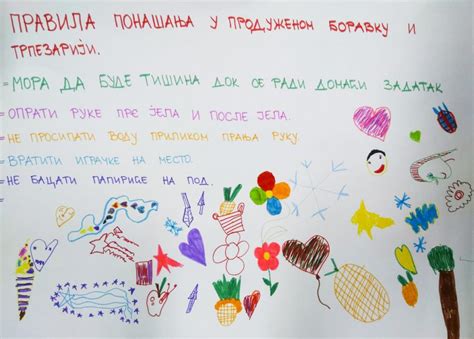 ПРАВИЛА ПОНАШАЊА У ПРОДУЖЕНОМ БОРАВКУ И
ТРПЕЗАРИЈИ.
= МОРА ДА БУДЕ ТИШИНА ДОК СЕ РАДИ ДОМАЋИ ЗАДАТАК
= ОПРАТИ РУКЕ ПРЕ ЈЕЛА И ПОСЛЕ ЈЕЛА.
= НЕ ПРОСИПАТИ ВОДУ ПРИЛИКОМ ПРАЊА РУКУ
= ВРАТИТИ ИГРАЧКЕ НА МЕСТО.
= НЕ БАЦАТИ ПАПИРИЋЕ НА ПОД.
=